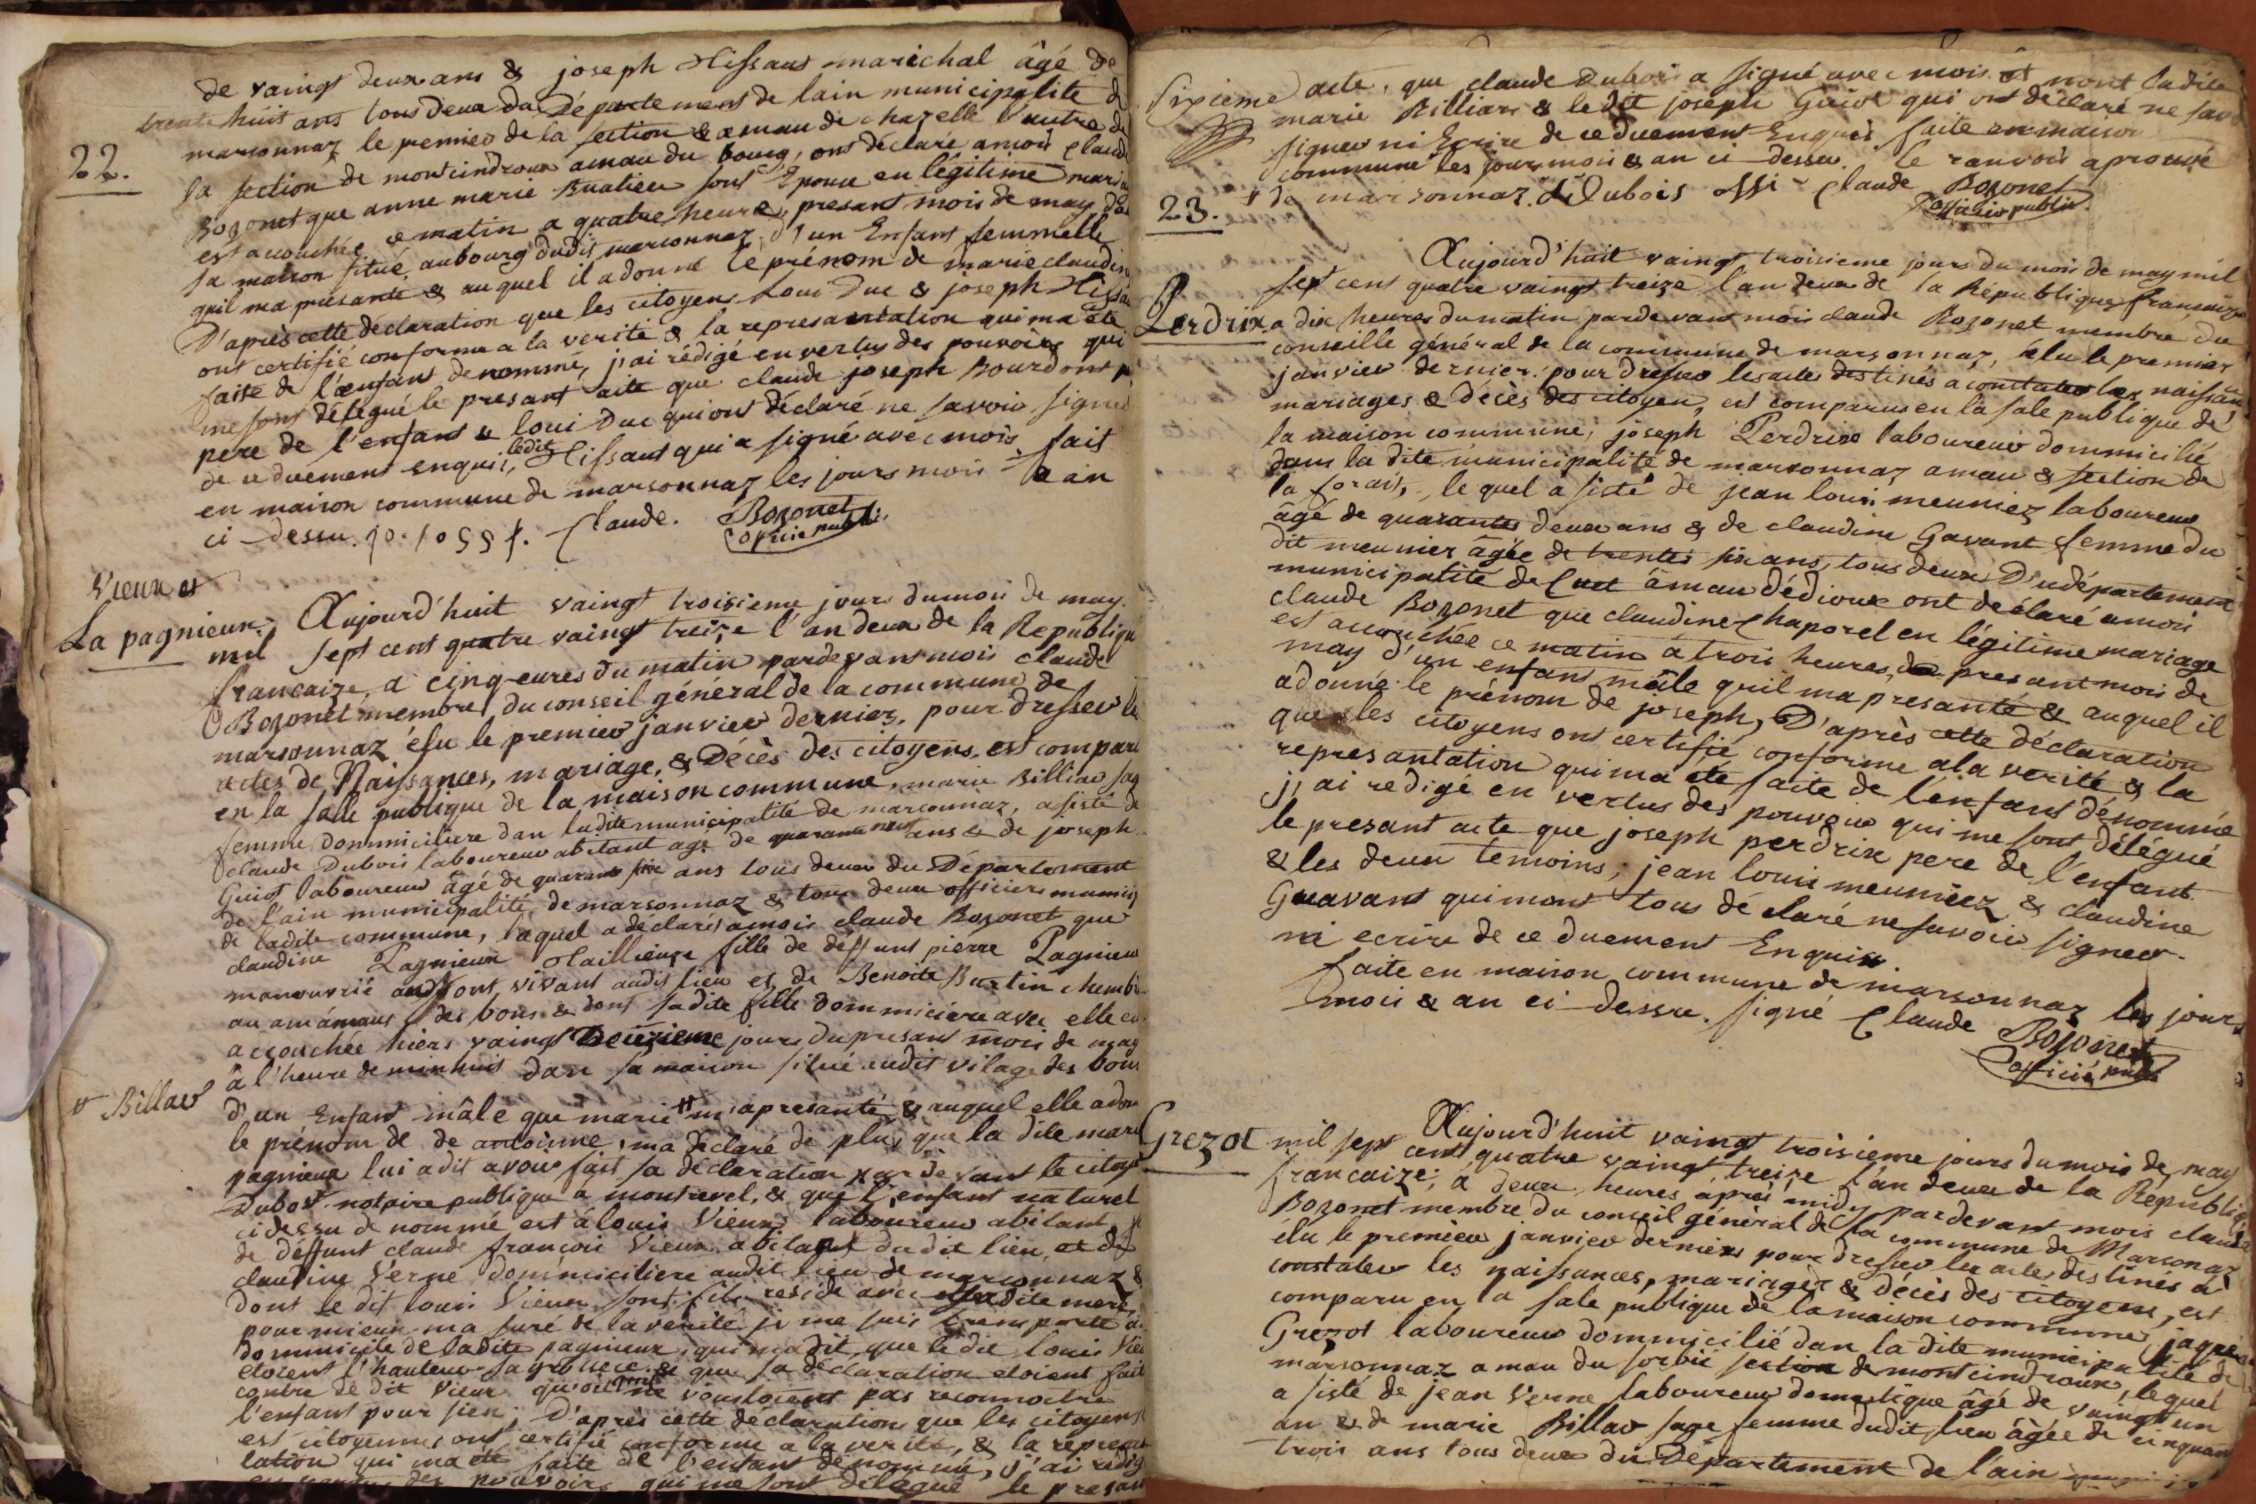 de vaingt deux ans & joseph Tissant marichal âgé de
trente huit ans tous deux du Département de lain municipalité d
marsonnaz le premier de la section & amau de chazelle l'autre de
22.
la section de montcindroux amau du bourg, ont déclaré amois claude
Bozonet que anne marie Buatier sont Epouse en légitime maria
est acouchée ce matin a quatre heure, presant mois de may
sa maison situé aubourg dudit marsonnaz, d'un Enfant femmelle
quil ma présanté & auquel il adonné le prénom de marie claudin
D'après cette déclaration que les citoyens Loui Duc & joseph Tissa
ont certifié conforme a la verité & la representation qui ma été
faite de l'enfant denommé, j'ai rédigé en vertus des pouvoirs qui
me sont délégué le presant acte que claude joseph Bourdont
pere de l'enfant & loui Duc qui ont déclaré ne savoir signer
de ce duement enquis, ledit Tissant qui a signé avec mois fait
en maison commune de marsonnaz les jours mois & an
ci dessu. Claude. Bozonet
officié public
Vieux et
La pagnieux. Aujourd'huit vaingt troisieme jours dumois de may
mil sept cent quatre vaingt treize l'an deux de la Republiqu
francaize, a cinq eures du matin pardevant mois claude
Bozonet membre du conseil général de la commune de
marsonnaz élu le premier janvier dernier, pour dresser le
actes de Naissances, mariage, & Décès des citoyens, est comparu
en la salle publique de la maison commune, marie Billiar sag
femme dommiciliere dan ladite municipalité de marsonnaz, asisté de
claude Dubois laboureur abitant agé de quarante neuf ans & de joseph
Guiot laboureur âgé de quarante six ans tous deux du Département
de l'ain municipalité de marsonnaz & tous deux officier municip
de ladite commune, laquel a déclaré amois claude Bozonet que
claudine Pagnieux Taillieuse fille de déffunt pierre Pagnieux
manouvrié audit ont vivant audit lieu et de Benoite Burtin
au amamaux des bons & dont sadite fille dommiciere avec elle
acouchée hiers vaingt Deuzieme jours du presant mois de may
â l'heure de minhuit dan sa maison situé audit vilage des bons
v Billar
d'un Enfant mâle que marie # m'apresanté & auquel elle adon
le prénom de de antoinne, ma déclaré de plus que la dite marie
pagnieux lui adit avoir fait sa déclaration par devant le citoye
Dubost notaire publique a montrevel, & que l'enfant naturel
cidessu de nommé est â louis Vieux laboureur abitant
de déffunt claude françois Vieux abitant du dit lieu, et de
claudine Verne dommiciliere audit lieu de marsonnaz &
dont le dit louis Vieux sont fils reside avec sadite mere,
pour mieux ma suré de laverité je me suis transporté a
dommicile de ladite pagnieux, qui m'adit que le dit louis Vie
etoient l'hauteur sagrossece & que sa declaration etoient fait
contre le dit Vieux qu'oiqu'il ne vousloient pas reconnoitre
l'enfant pour sien, D'après cette déclaration que les citoyens
est citoyennes ont certifié conforme a la verité, & la represen
tation qui ma été faite de l'enfant denommé, j'ai rédig
en vertus des pouvoirs qui me sont délégué le presan
Sixieme acte, que claude Dubois a signé avec mois et nont ladite
marie Billiar & le dit joseph Guiot qui ont déclaré ne savoir
signer ni Ecrire de ce duement Enquis faite en maison
commune les jour mois & an ci dessu. le ranvois aprouvé
23. + de marsonnaz. Dubois Claude Bozonet
officié public
Aujourd'huit vaingt troisieme jours du mois de may mil
sept cent quatre vaingt treize l'an deux de la République francaize
Perdrix a dix heures du matin pardevant mois claude Bozonet membre du
conseille général de la commune de marsonnaz, élu le premier
janvier dernier, pour dresser les actes destinés a constater les naissan
mariages & Décès des citoyen, est comparus en la sale publique de
la maison commune, joseph Perdrix laboureur dommicilié
dans la dite municipalité de marsonnaz amau & section de
la forait, le quel asisté de jean loui meuniez laboureur
âgé de quarante deux ans & de claudine Gavant femme du
dit meunier âgée de trente six ans, tous deux Du département
municipalité de Cuet âmau dédioux ont déclaré amois
claude Bozonet que claudine Chaporel en légitime mariage
est acouchée ce matin à trois heures, du presant mois de
may d'un enfant mâle quil ma presanté & auquel il
adonné le prénom de joseph, D'après cette déclaration
que les citoyens ont certifié conforme ala verité & la
représantation qui ma été faite de l'enfant dénommé
j'ai redigé en vertus des pouvoir qui me sont délégué
le presant acte que joseph perdrix pere de l'enfant
& les deux temoins, jean louis meuniez & claudine
Guavant qui mont tous déclaré ne savoir signer
ni ecrire de ce duement Enquis.
faite en maison commune de marsonnaz les jours
mois & an ci dessu. signé Claude Bozonet
officié public
Grezot Aujourd'huit vaingt troisieme jours du mois de may
mil sept cent quatre vaingt treize l'an deux de la Republiq
francaize, à deux heures après midy pardevant mois claude
Bozonet membre du conseil général de la commune de Marsonnaz
élu le premier janvier derniers pour dresser les actes destinés à
constater les naissances, mariages & décès des citoyens, est
comparu en la sale publique de la maison commune jaque
Grezot laboureur dommicilié dan la dite municipalité de
marsonnaz amau du sorbié section de montcindroux, le quel
asisté de jean Verne laboureur domestique âgé de vaingt un
an & de marie Billar sage femme dudit lieu âgée de cinquan
trois ans tous deux du Département de l'ain